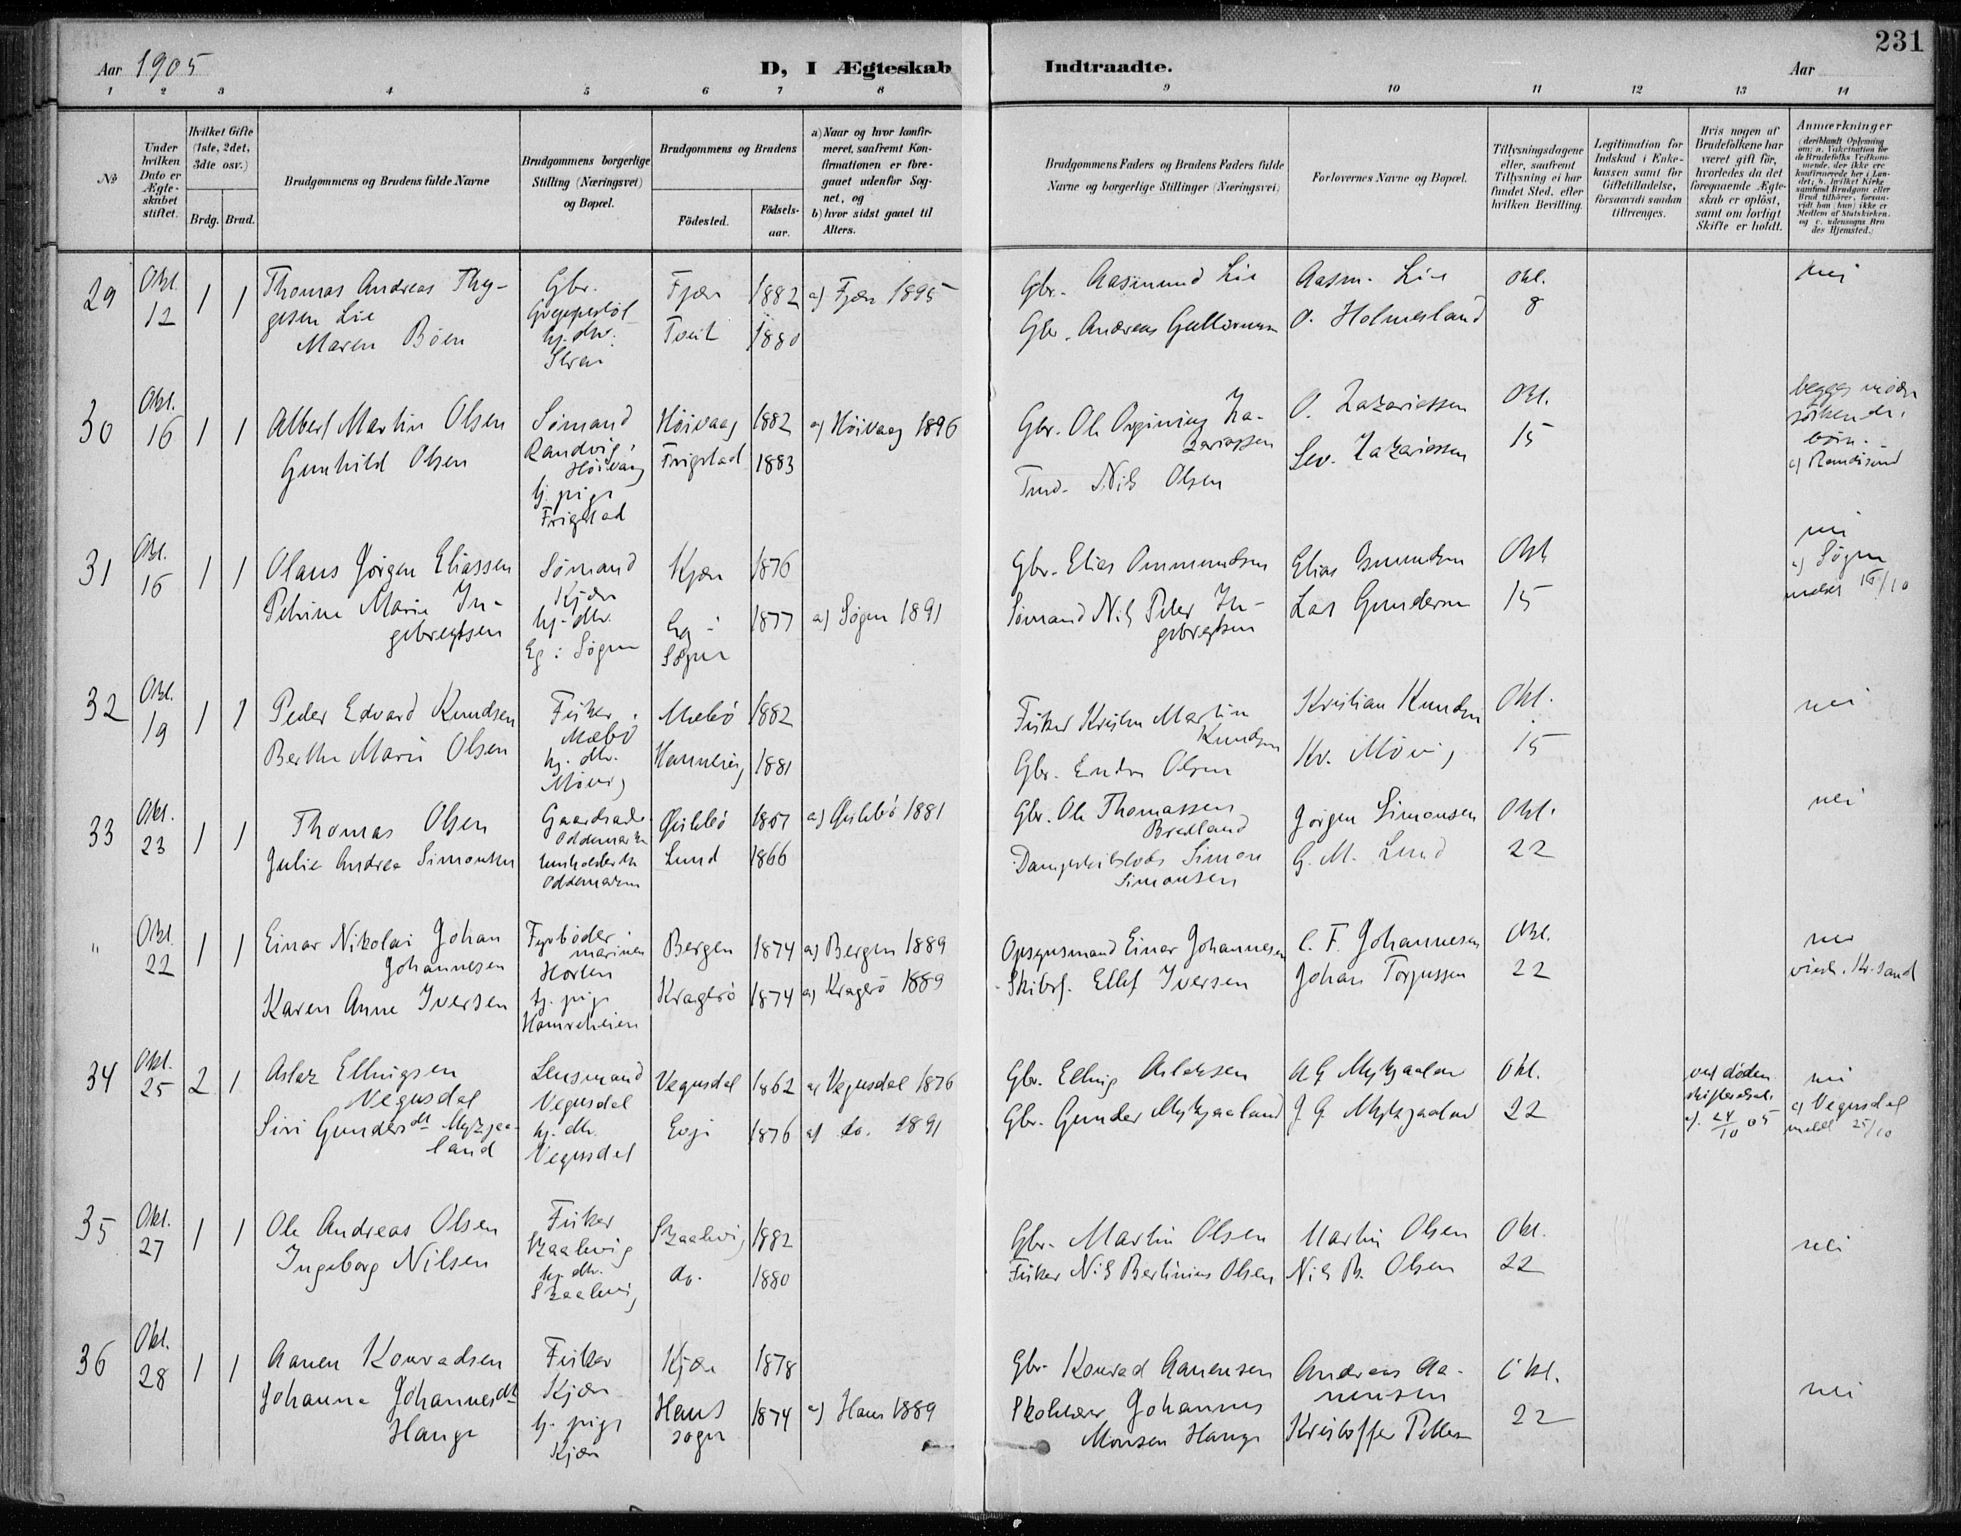 231
Aar 1905
D, I Ægteskab Indtraadte.
Aar
1 2 3 4 5 6 7 8 9 10 11 12 13 14
№
Under hvilken Dato er Ægteskabet stiftet.
Hvilket Gifte (1ste, 2det, 3dte osv.)
Brdg. Brud.
Brudgommens og Brudens fulde Navne
Brudgommens borgerlige Stilling (Næringsvei) og Bopæl.
Brudgommens og Brudens
Fødested.
Fødselsaar.
a) Naar og hvor konfirmeret, saafremt Konfirmationen er foregaaet udenfor Sognet, og
b) hvor sidst gaaet til Alters.
Brudgommens Faders og Brudens Faders fulde Navne og borgerlige Stillinger (Næringsvei)
Forlovernes Navne og Bopæl.
Tillysningsdagene eller, saafremt Tillysning ei har fundet Sted, efter hvilken Bevilling.
Legitimation for Indskud i Enkekassen samt for Giftetilladelse, forsaavidt saadan tiltrænges.
Hvis nogen af Brudefolkene har været gift før, hvorledes da det foregaaende Ægteskab er opløst, samt om lovligt Skifte er holdt.
Anmærkninger
29 Okt. 12 1 1
Thomas Andreas Thygesen Lie
Maren Bøen
Gbr.
hj. dtr.
Fjære 1882 a) Fjære 1895
Tveit 1880
Gbr. Aasmund Lie
Gbr. Andreas
Aasm. Lie
O. Holmesland
Okt. 8
nei
30 Okt. 16 1 1
Albert Martin Olsen
Gunhild Olsen
Sømand
Randvig, Høivaag
hj. pige
Frigstad
Høivaag 1882 a) Høivaag 1896
Frigstad 1883
Gbr. Ole Zakariassen
Nils Olsen
O. Zakariassen
Sev. Zakariassen
Okt. 15
søskendebørn.
c) Randøsund
31 Okt. 16 1 1
Olaus Jørgen Eliassen
Petrine Marie Ingebregtsen
Sømand
Kjære
hj. dtr.
Eg : Søgne
Kjære 1876
Eg : Søgne 1877 a) Søgne 1891
Gbr. Elias Ommundsen
Sømand Nils Peter Ingebregtsen
Elias
Lars Gundersen
Okt. 15
nei
c) Søgne
meldt 16/10
32 Okt. 19 1 1
Peder Edvard Knudsen
Berthe Marie Olsen
Fisker
Mæbø
hj. dtr.
Møvig
Mæbø 1882
Hannevig 1881
Fisker Kristen Martin Knudsen
Gbr. Endre Olsen
Kristian Knudsen
Kr. Møvig
Okt. 15
nei
33 Okt. 23 1 1
Thomas Olsen
Julie Andrea Simonsen
Oddernæs
Øislebø 1867 a) Øislebø 1881
Lund 1866
Gbr. Ole Thomassen Bredland
Simon Simonsen
Jørgen Simonsen
G. M. Lund
Okt. 22
nei
" Okt. 22 1 1
Einar Nikolai Johan Johannesen
Karen Anne Iversen
Fyrbøder marinen
Horten
hj. pige
Hamreheien
Bergen 1874 a) Bergen 1889
Kragerø 1874 a) Kragerø 1889
Opsynsmand Einar Johannesen
Skibsf. Ellef Iversen
C. F. Johannesen
Johan Torjussen
Okt. 22
nei
viede. Kr.sand
34 Okt. 25 2 1
Aslak Ellingsen Vegusdal
Siri Gundersdt Mykjaaland
Lensmand
Vegusdal
hj. dtr.
Vegusdal
Vegusdal 1862 a) Vegusdal 1876
Evje 1876 a) do. 1891
Gbr. Elling Aslaksen
Gbr. Gunder Mykjaaland
A G Mykjaaland
J. G. Mykjaaland
Okt. 22
ved døden
skifteattest
af 24/10 05
nei
c) Vegusdal
meldt 25/10
35 Okt. 27 1 1
Ole Andreas Olsen
Ingeborg Nilsen
Fisker
Skaalevig
hj. dtr.
Skaalevig
Skaalevig 1882
do. 1880
Gbr. Martin Olsen
Fisker Nils Bertinius Olsen
Martin Olsen
Nils B. Olsen
Okt. 22
nei
36 Okt. 28 1 1
Aanen Konradsen
Johanna Johannesdt Hauge
Fisker
Kjære
hj. pige
Kjære
Kjære 1878
Haus sogn 1874 a) Haus 1889
Gbr. Konrad Aanensen
Skolelærer Johannes Monsen Hauge
Andreas Aanensen
Kristoffer
Okt. 22
nei